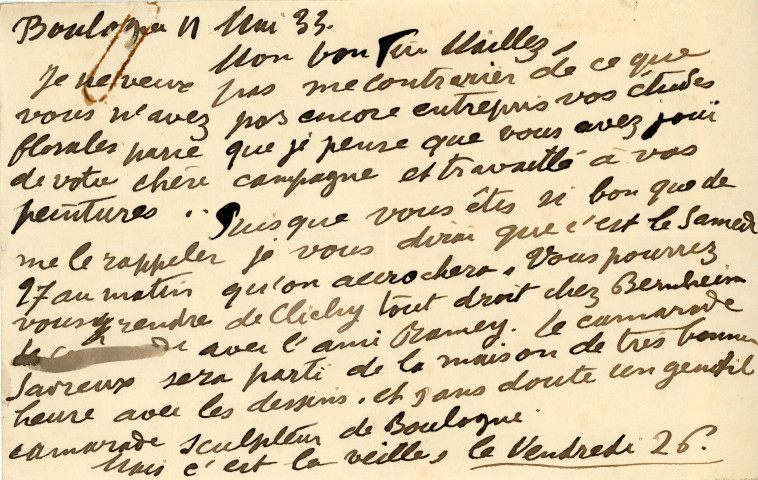 Boulogne 11 Mai 33.
Mon bon Maillez,
Je ne veux pas me contrarier de ce que
vous n'avez pas encore entrepris vos études
florales parce que je pense que vous avez joui
de votre chère campagne et travaillé à vos
peintures .. Puisque vous êtes si bon que de
me le rappeler je vous dirai que c'est le Samedi
27 au matin qu'on accrochera. Vous pourrez
vous y rendre de Clichy tout droit chez Bernheim
avec l'ami Ramey. Le camarade
Savreux sera parti de la maison de très bonne
heure avec les dessins. et sans doute un gentil
camarade sculpteur de Boulogne.
Mais c'est la veille, le Vendredi 26.